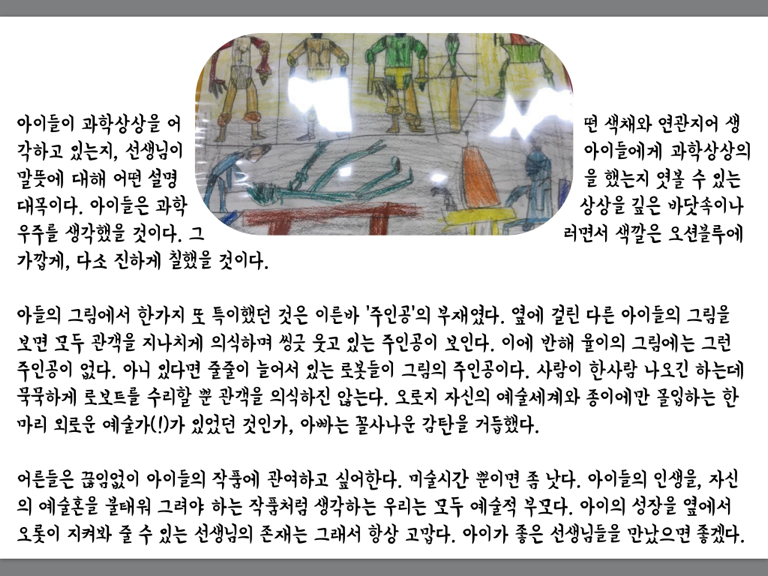 아이들이 과학상상을 어떤 색채와 연관지어 생
각하고 있는지, 선생님이 아이들에게 과학상상의
말뜻에 대해 어떤 설명을 했는지 엿볼 수 있는
대목이다. 아이들은 과학상상을 깊은 바닷속이나
우주를 생각했을 것이다. 그러면서 색깔은 오션블루에
가깝게, 다소 진하게 칠했을 것이다.
아들의 그림에서 한가지 또 특이했던 것은 이른바 '주인공'의 부재였다. 옆에 걸린 다른 아이들의 그림을
보면 모두 관객을 지나치게 의식하며 씽긋 웃고 있는 주인공이 보인다. 이에 반해 율이의 그림에는 그런
주인공이 없다. 아니 있다면 줄줄이 늘어서 있는 로봇들이 그림의 주인공이다. 사람이 한사람 나오긴 하는데
묵묵하게 로보트를 수리할 뿐 관객을 의식하진 않는다. 오로지 자신의 예술세계와 종이에만 몰입하는 한
마리 외로운 예술가(!)가 있었던 것인가, 아빠는 꼴사나운 감탄을 거듭했다.
어른들은 끊임없이 아이들의 작품에 관여하고 싶어한다. 미술시간 뿐이면 좀 낫다. 아이들의 인생을, 자신
의 예술혼을 불태워 그려야 하는 작품처럼 생각하는 우리는 모두 예술적 부모다. 아이의 성장을 옆에서
오롯이 지켜봐 줄 수 있는 선생님의 존재는 그래서 항상 고맙다. 아이가 좋은 선생님들을 만났으면 좋겠다.